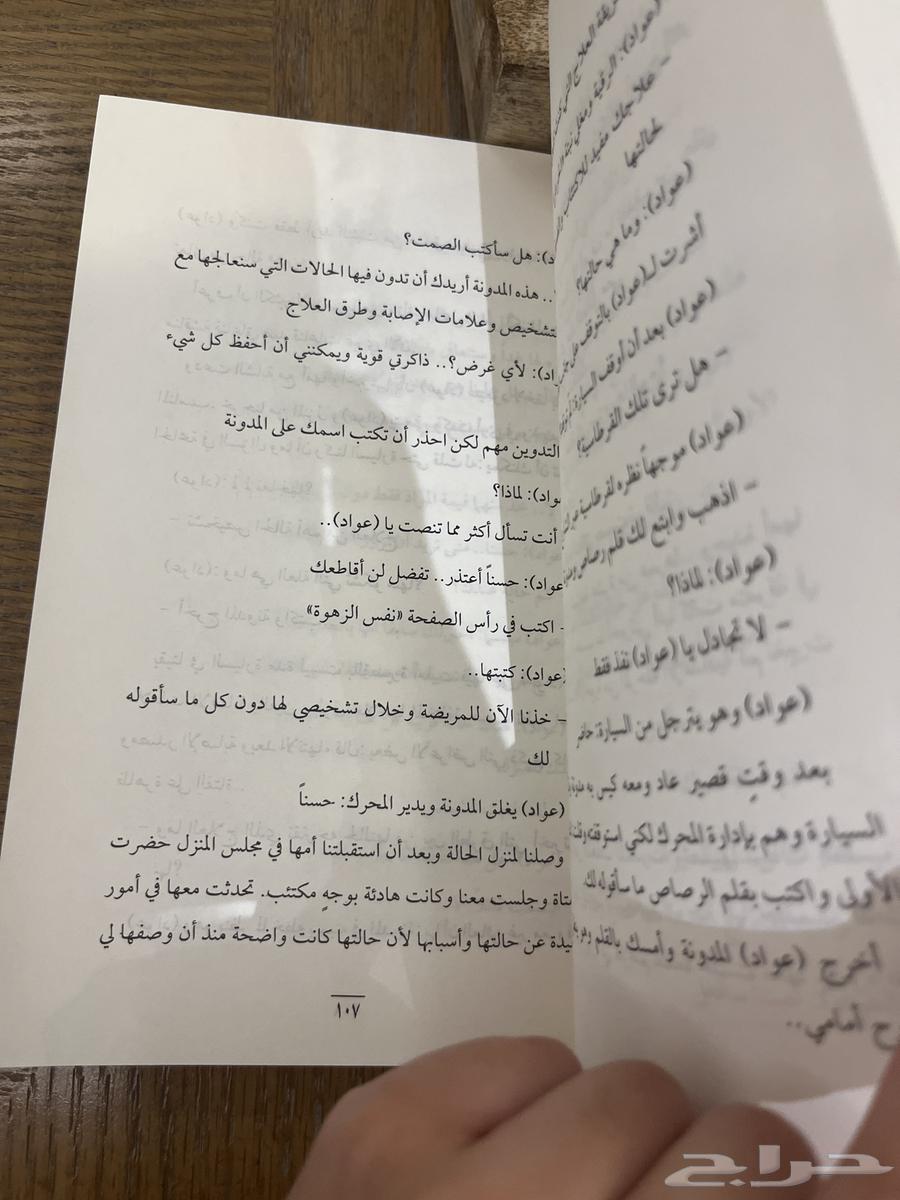 (عواد): الرقية ومغلي
– علاجك مفيد للاكتئاب
لحالتها
(عواد): وما هي حالتها؟
أشرت لـ(عواد) بالتوقف على
(عواد) بعد أن أوقف السيارة:
– هل ترى تلك القرطاسية؟
(عواد) موجهاً نظره لقرطاسية
– اذهب وابتع لك قلم رصاص
(عواد): لماذا؟
– لا تجادل يا (عواد) نفذ فقط
(عواد) وهو يترجل من السيارة: حاضر
بعد وقتٍ قصير عاد ومعه كيس به
السيارة وهم بإدارة المحرك لكني استوقفته
الأولى واكتب بقلم الرصاص ما سأقوله لك
أخرج (عواد) المدونة وأمسك بالقلم
أمامي..
اد): هل سأكتب الصمت؟
.. هذه المدونة أريدك أن تدون فيها الحالات التي سنعالجها مع
تشخيص وعلامات الإصابة وطرق العلاج
اد): لأي غرض؟.. ذاكرتي قوية ويمكنني أن أحفظ كل شيء
التدوين مهم لكن احذر أن تكتب اسمك على المدونة
واد): لماذا؟
أنت تسأل أكثر مما تنصت يا (عواد)..
عواد): حسناً أعتذر.. تفضل لن أقاطعك
- اكتب في رأس الصفحة «نفس الزهوة»
(عواد): كتبتها..
– خذنا الآن للمريضة وخلال تشخيصي لها دون كل ما سأقوله
لك
(عواد) يغلق المدونة ويدير المحرك: حسناً
وصلنا لمنزل الحالة وبعد أن استقبلتنا أمها في مجلس المنزل حضرت
تاة وجلست معنا وكانت هادئة بوجهٍ مكتئب. تحدثت معها في أمور
يدة عن حالتها وأسبابها لأن حالتها كانت واضحة منذ أن وصفها لي
١٠٧
حراج